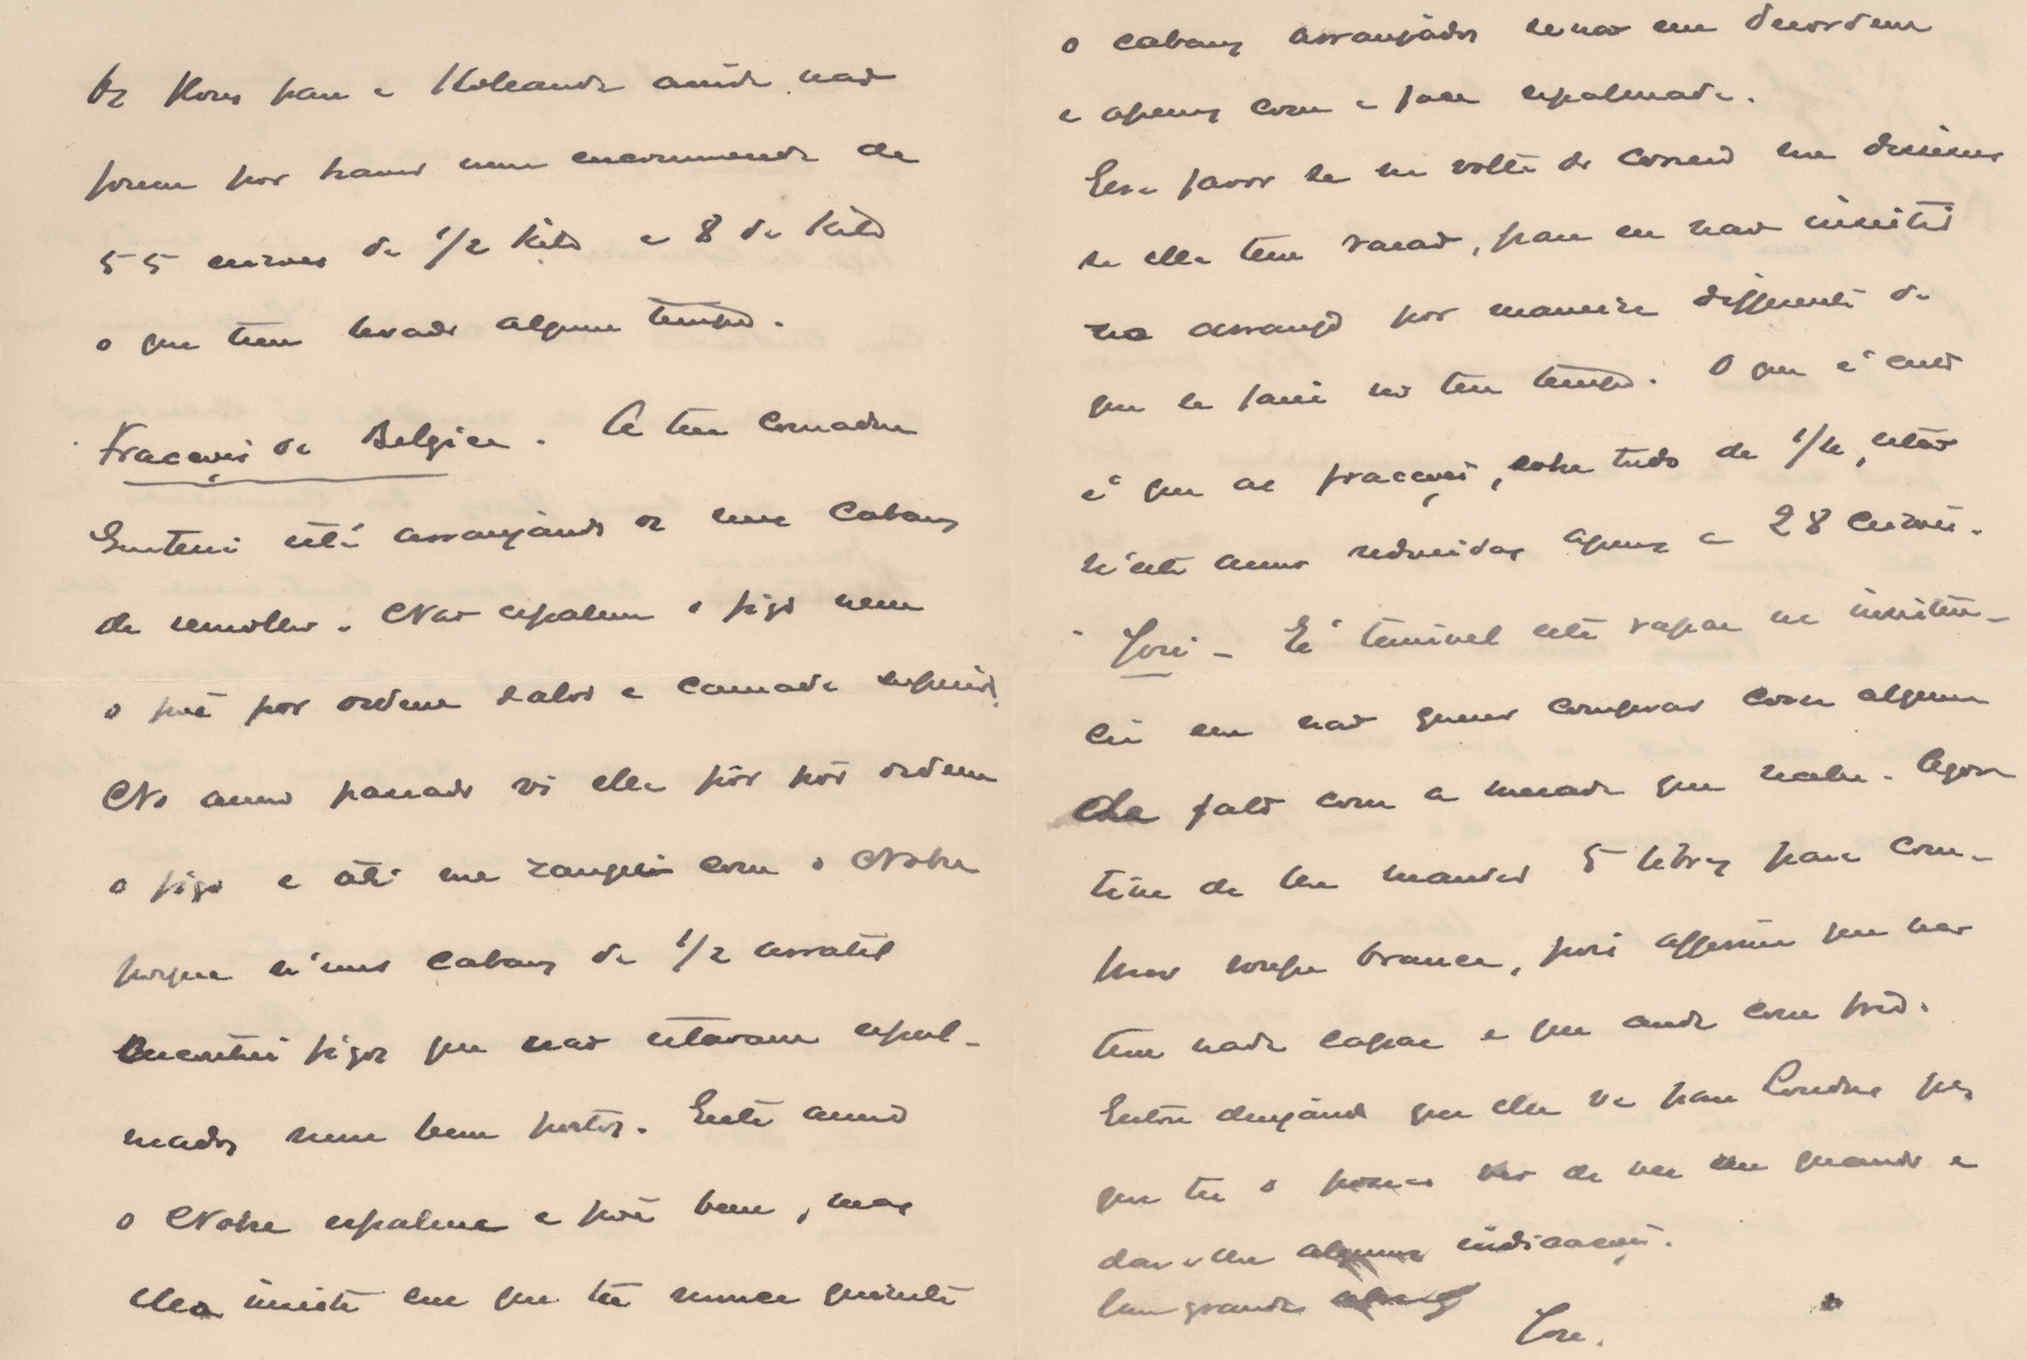 Os flores para a Hollanda ainda não
foram por haver uma encommenda de
55 caixas de 1/2 kilo e 8 de kilo
o que tem levado algum tempo.
Fracções da Belgica. A tua comadre
está arranjando os seus cabazes
de Não espalma o figo nem
o põe por ordem salvo a camada superior.
No anno passado vi ella pôr por ordem
o figo e até me zanguei com o Nobre
porque n'uns cabazes de 1/2 arratel
encontrei figos que não estavam espal-
mados nem bem postos. Este anno
o Nobre espalma e põe bem, mas
ella insiste em que tu nunca quizeste
o cabazes arranjados senão em desordem
e apenas com a face espalmada.
Era favor se na volta do correio me dissesses
se ella tem razão, para eu não insistir
no arranjo por maneira differente do
que se fazia no teu tempo. O que é certo
é que as fracções, sobre tudo de 1/2, estão
n'este anno reduzidas apenas a 28 caixas.
José - É terrivel este rapaz na insisten-
cia em não querer comprar com alguma
cha fato com a mezada que recebe. Agora
tive de lhe mandar 5 libras para com-
prar roupa branca, pois affirma que não
tem nada capaz e que anda com frio.
Estou desejando que elle vá para Londres para
que tu o possas ver de vez em quando e
dar-lhe algumas indicações.
Um grande
José.